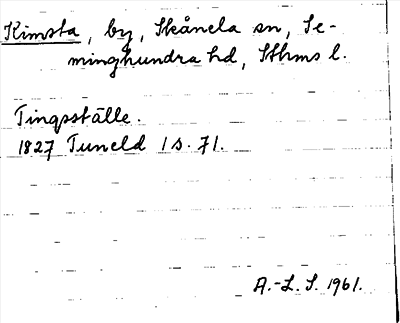 Kimsta, by, Skånela sn, Se-
minghundra hd, Sthms l.
Tingsställe.
1827 Tuneld 1 s. 71.
A.-L. S. 1961.